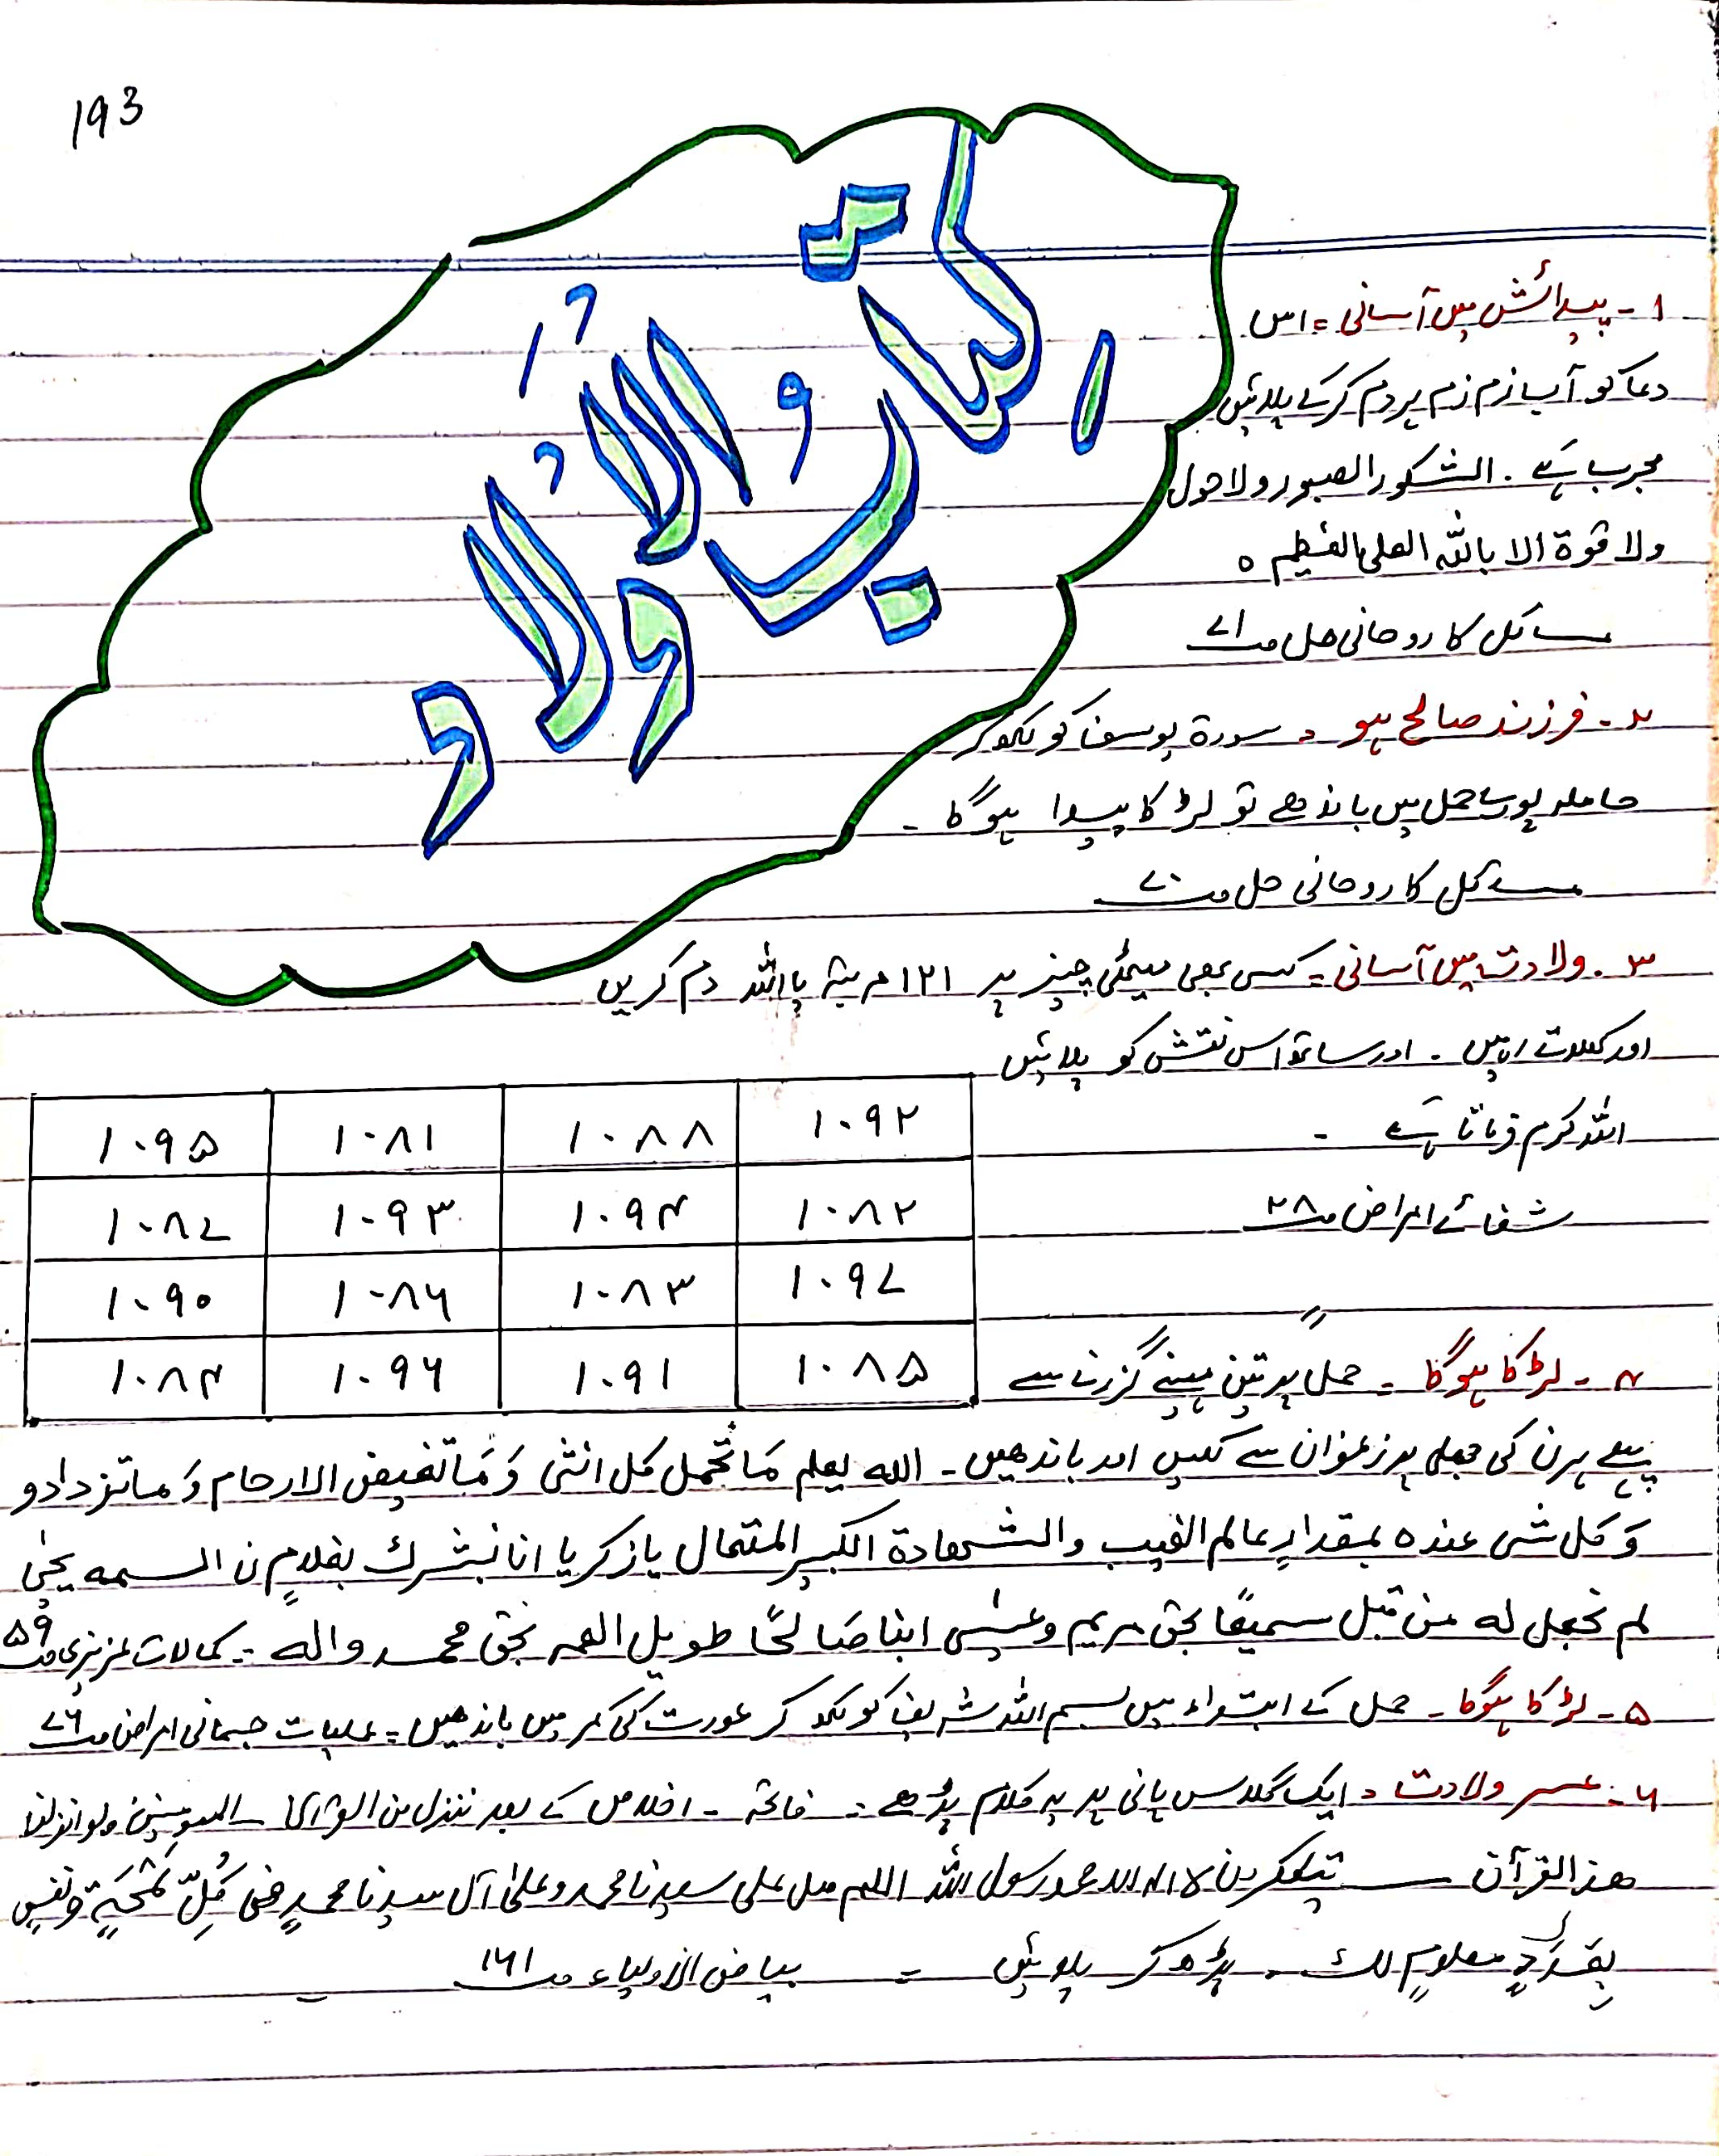 193
کتاب الاولاد
۱۔ پیدائش میں آسانی = اس
دعا کو آب زم زم پر دم کرکے پلائیں
مجرب ہے ۔ الشکور الصبور ولا حول
ولا قوة الا باللہ العلی العظیم ٥
مسائل کا روحانی حل صـ ۷۱
۲۔ فرزند صالح ہو = سورة یوسف کو لکھ کر
حاملہ پورے حمل میں باندھے تو لڑکا پیدا ہوگا ۔
مسائل کا روحانی حل صـ ۷۰
۳۔ ولادت میں آسانی = کسی بھی میٹھی چیز پر ۱۲۱ مرتبہ یا اللہ دم کریں
اور کھلاتے رہیں ۔ اور ساتھ اس نقش کو پلائیں
اللہ کرم فرماتا ہے ۔
شفائے امراض صـ ۲۸
۱۰۹۲ ۱۰۸۸ ۱۰۸۱ ۱۰۹۵
۱۰۸۲ ۱۰۹۴ ۱۰۹۳ ۱۰۸۷
۱۰۹۷ ۱۰۸۳ ۱۰۸۶ ۱۰۹۰
۱۰۸۵ ۱۰۹۱ ۱۰۹۶ ۱۰۸۴
۴۔ لڑکا ہوگا ۔ حمل پر تین مہینے گزرنے سے
پہلے ہرن کی جھلی پر زعفران سے لکھیں اور باندھیں ۔ اللہ یعلم مَا تحمل کل انثی وَمَا تغیض الارحام وَما تزدادو
وَکل شی عندہ بمقدارٍ عالم الغیب والشھادة الکبیر المتعال یا زکریا انا نبشرك بغلامٍ ن السمه یحیٰ
لم نجعل له من قبل سمیًا بحق مریم وعیسٰی ابنا صَالحًا طویل العمر بحق محمد واله ۔ کمالات عزیزی صـ ۵۹
۵۔ لڑکا ہوگا ۔ حمل کے ابتداء میں بسم اللہ شریف کو لکھ کر عورت کی کمر میں باندھیں = عملیات جسمانی امراض صـ ۷۶
۶۔ عسر ولادت = ایک گلاس پانی پر یہ کلام پڑھے ۔ فاتحہ ۔ اخلاص کے بعد ننزل من القرآن للمومنین ولو انزلنا
ھذ القرآن ــ یتفکرون لا الہ الا اللہ محمد رسول اللہ اللھم صل علی سیدنا محمد و علیٰ آل سیدنا محمدٍ فی کُلِّ لَمْحَةٍ ونفسٍ
بِعَدَدِ معلومٍ لك ۔ پڑھ کر پلائیں = بیاض الاولیاء صـ ۱۶۱